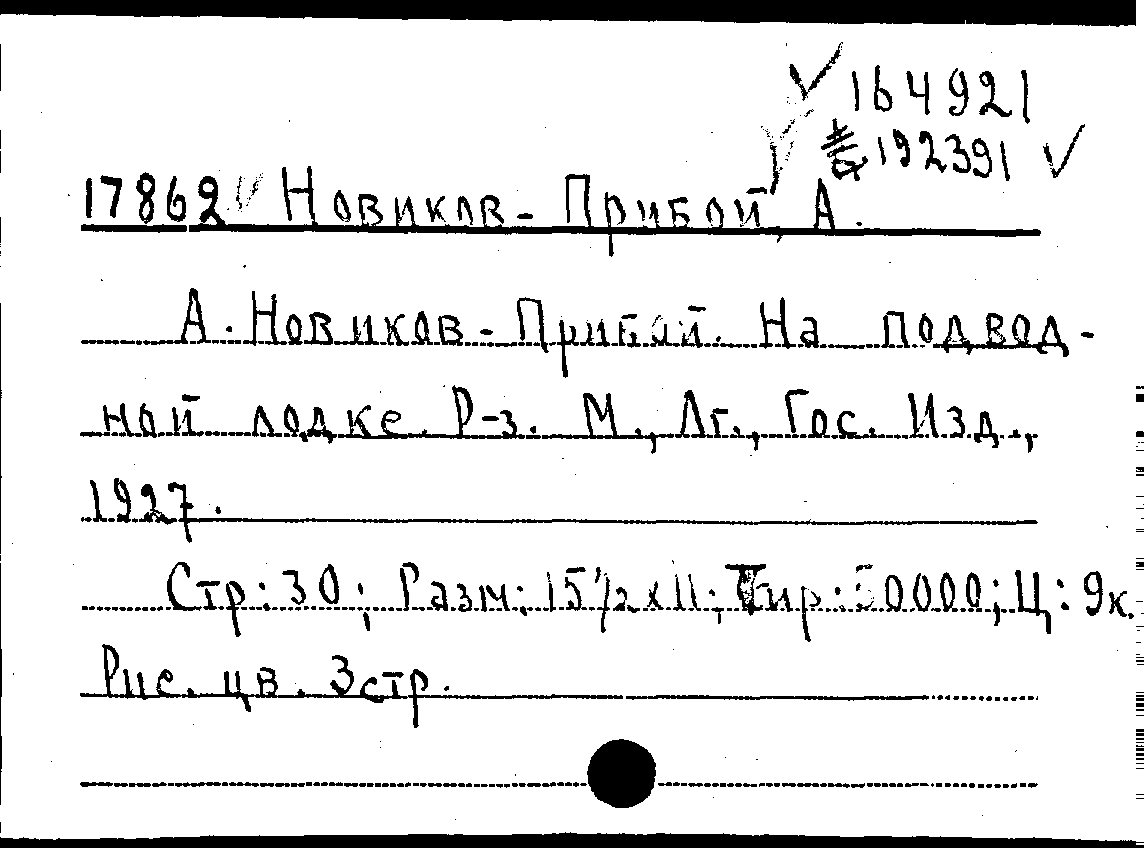 164921
192391
17862 Новиков-Прибой, А.
А. Новиков-Прибой. На подвод-
ной лодке. Р-з. М., Лг., Гос. Изд.,
1927.
Стр: 30; Разм: 15½x11; Тир: 50000; Ц: 9к.
Рис. цв. 3стр.